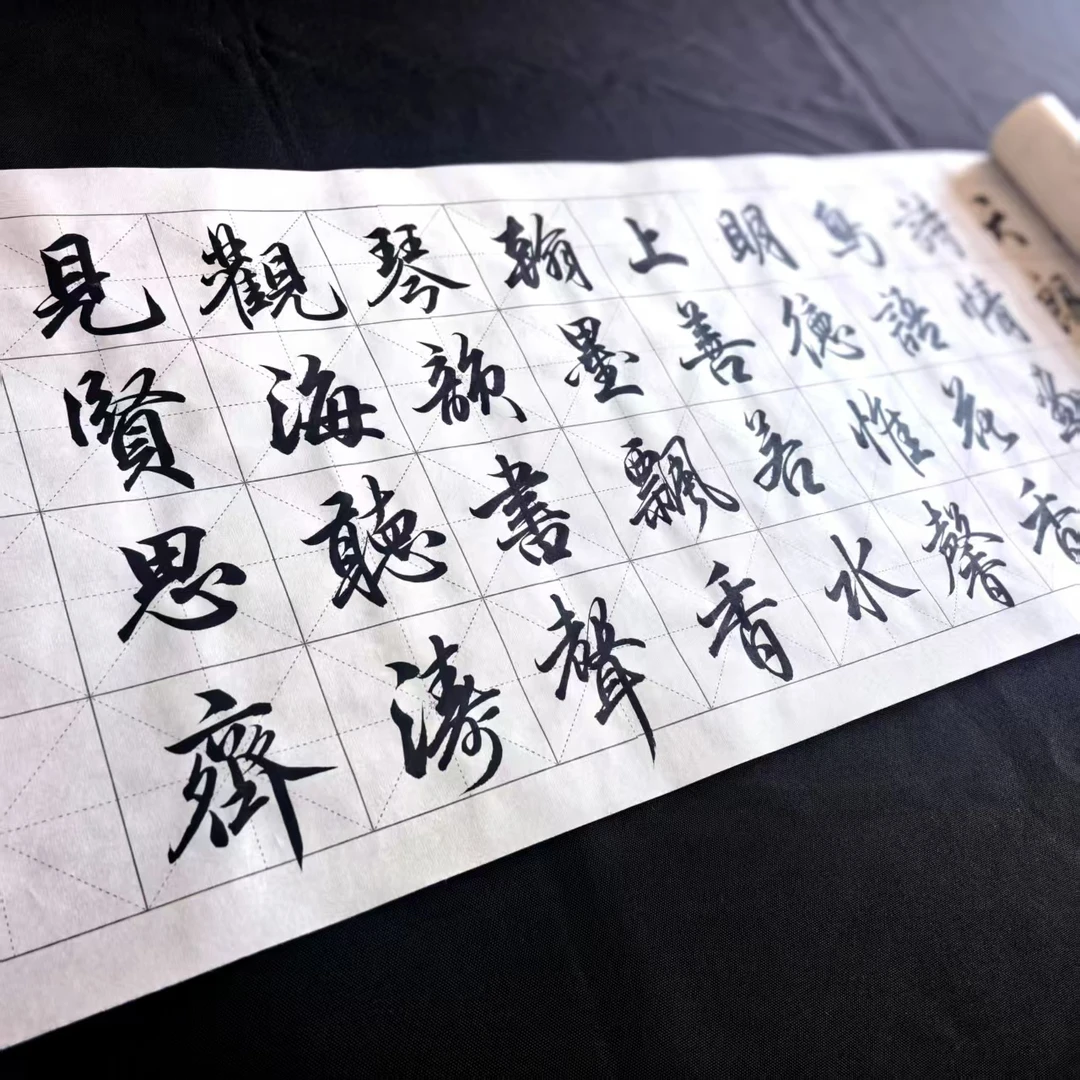 天
詩情畫
鳥語花香
明德惟馨
上善若水
翰墨飄香
琴韻書聲
觀海聽濤
見賢思齊